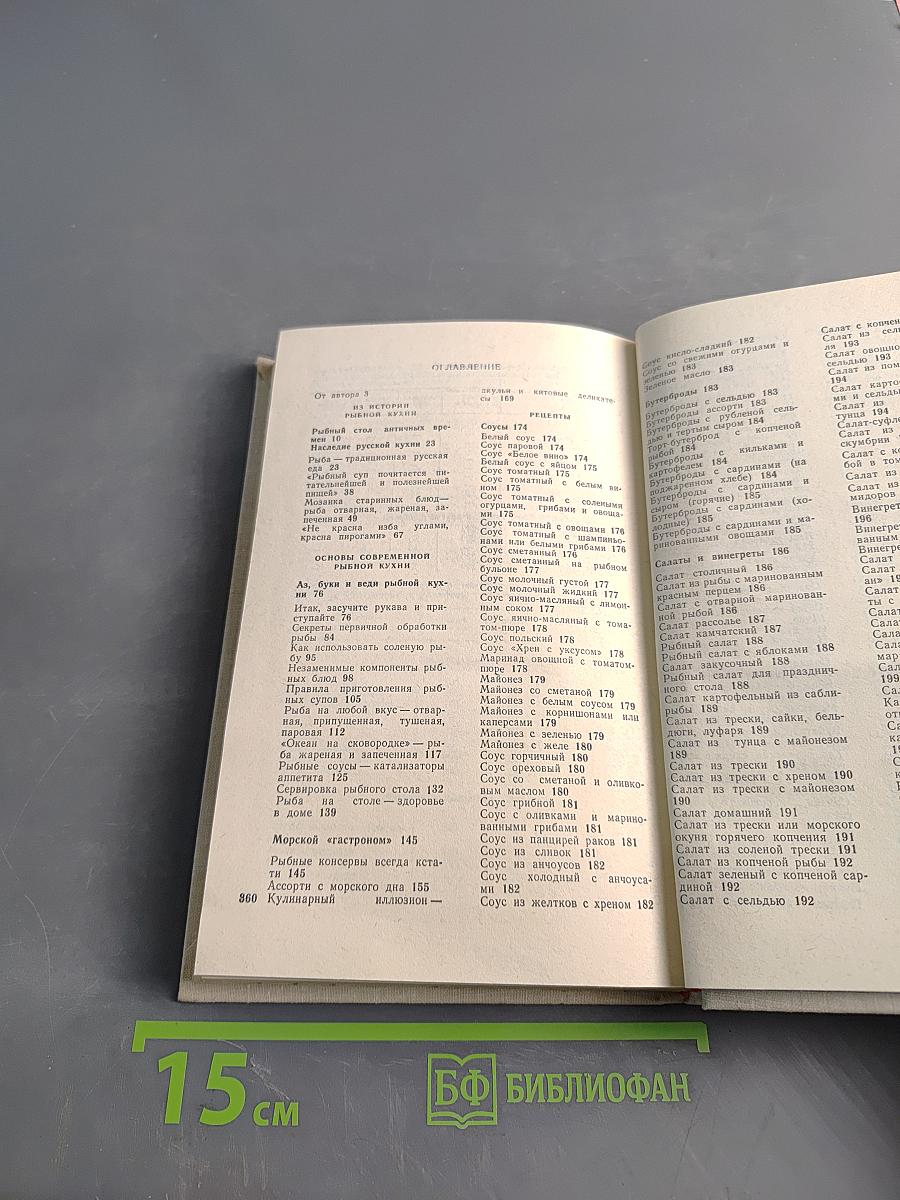 ОГЛАВЛЕНИЕ
От автора 3
ИЗ ИСТОРИИ
РЫБНОЙ КУХНИ
Рыбный стол античных вре-
мен 10
Наследие русской кухни 23
Рыба — традиционная русская
еда 23
«Рыбный суп почитается пи-
тательнейшей и полезнейшей
пищей» 38
Мозаика старинных блюд—
рыба отварная, жареная, за-
печенная 49
«Не красна изба углами,
красна пирогами» 67
ОСНОВЫ СОВРЕМЕННОЙ
РЫБНОЙ КУХНИ
Аз, буки и веди рыбной кух-
ни 76
Итак, засучите рукава и при-
ступайте 76
Секреты первичной обработки
рыбы 84
Как использовать соленую ры-
бу 95
Незаменимые компоненты рыб-
ных блюд 98
Правила приготовления рыб-
ных супов 105
Рыба на любой вкус — отвар-
ная, припущенная, тушеная,
паровая 112
«Океан на сковородке» — ры-
ба жареная и запеченная 117
Рыбные соусы — катализаторы
аппетита 125
Сервировка рыбного стола 132
Рыба на столе — здоровье
в доме 139
Морской «гастроном» 145
Рыбные консервы всегда кста-
ти 145
Ассорти с морского дна 155
360 Кулинарный иллюзион —
акульи и китовые деликате-
сы 169
РЕЦЕПТЫ
Соусы 174
Белый соус 174
Соус паровой 174
Соус «Белое вино» 174
Белый соус с яйцом 175
Соус томатный 175
Соус томатный с белым ви-
ном 175
Соус томатный с солеными
огурцами, грибами и овоща-
ми 175
Соус томатный с овощами 176
Соус томатный с шампиньо-
нами или белыми грибами 176
Соус сметанный 176
Соус сметанный на рыбном
бульоне 177
Соус молочный густой 177
Соус молочный жидкий 177
Соус яично-масляный с лимон-
ным соком 177
Соус яично-масляный с тома-
том-пюре 178
Соус польский 178
Соус «Хрен с уксусом» 178
Маринад овощной с томатом-
пюре 178
Майонез 179
Майонез со сметаной 179
Майонез с белым соусом 179
Майонез с корнишонами или
каперсами 179
Майонез с зеленью 179
Майонез с желе 180
Соус горчичный 180
Соус ореховый 180
Соус со сметаной и оливко-
вым маслом 180
Соус грибной 181
Соус с оливками и марино-
ванными грибами 181
Соус из панцирей раков 181
Соус из сливок 181
Соус из анчоусов 182
Соус холодный с анчоуса-
ми 182
Соус из желтков с хреном 182
Соус кисло-сладкий 182
Соус со свежими огурцами и
зеленью 183
Зеленое масло 183
Бутерброды 183
Бутерброды с сельдью 183
Бутерброды ассорти 183
Бутерброды с рубленой сель-
дью и тертым сыром 184
Торт-бутерброд с копченой
рыбой 184
Бутерброды с кильками и
картофелем 184
Бутерброды с сардинами (на
поджаренном хлебе) 184
Бутерброды с сардинами и
сыром (горячие) 185
Бутерброды с сардинами (хо-
лодные) 185
Бутерброды с сардинами и ма-
ринованными овощами 185
Салаты и винегреты 186
Салат столичный 186
Салат из рыбы с маринованным
красным перцем 186
Салат с отварной маринован-
ной рыбой 186
Салат рассолье 187
Салат камчатский 187
Рыбный салат 188
Рыбный салат с яблоками 188
Салат закусочный 188
Рыбный салат для празднич-
ного стола 188
Салат картофельный из сабли-
рыбы 189
Салат из трески, сайки, бель-
дюги, луфаря 189
Салат из тунца с майонезом
189
Салат из трески 190
Салат из трески с хреном 190
Салат из трески с майонезом
190
Салат домашний 191
Салат из трески или морского
окуня горячего копчения 191
Салат из соленой трески 191
Салат из копченой рыбы 192
Салат зеленый с копченой сар-
диной 192
Салат с сельдью 192
Салат с копчен
Салат из сель
ля 193
Салат овощно
сельдью 193
Салат из пом
194
Салат карто
ми и сельд
Салат из
тунца 194
Салат-суфл
Салат из
скумбрии
Салат с ко
бой в том
Салат из
Салат из
мидоров
Винегрет
196
Винегрет
ванным
Винегре
Салат
ан»
Салат
ты с
Салат
Сала
Сала
мари
Сала
199
15 см
БФ БИБЛИОФАН